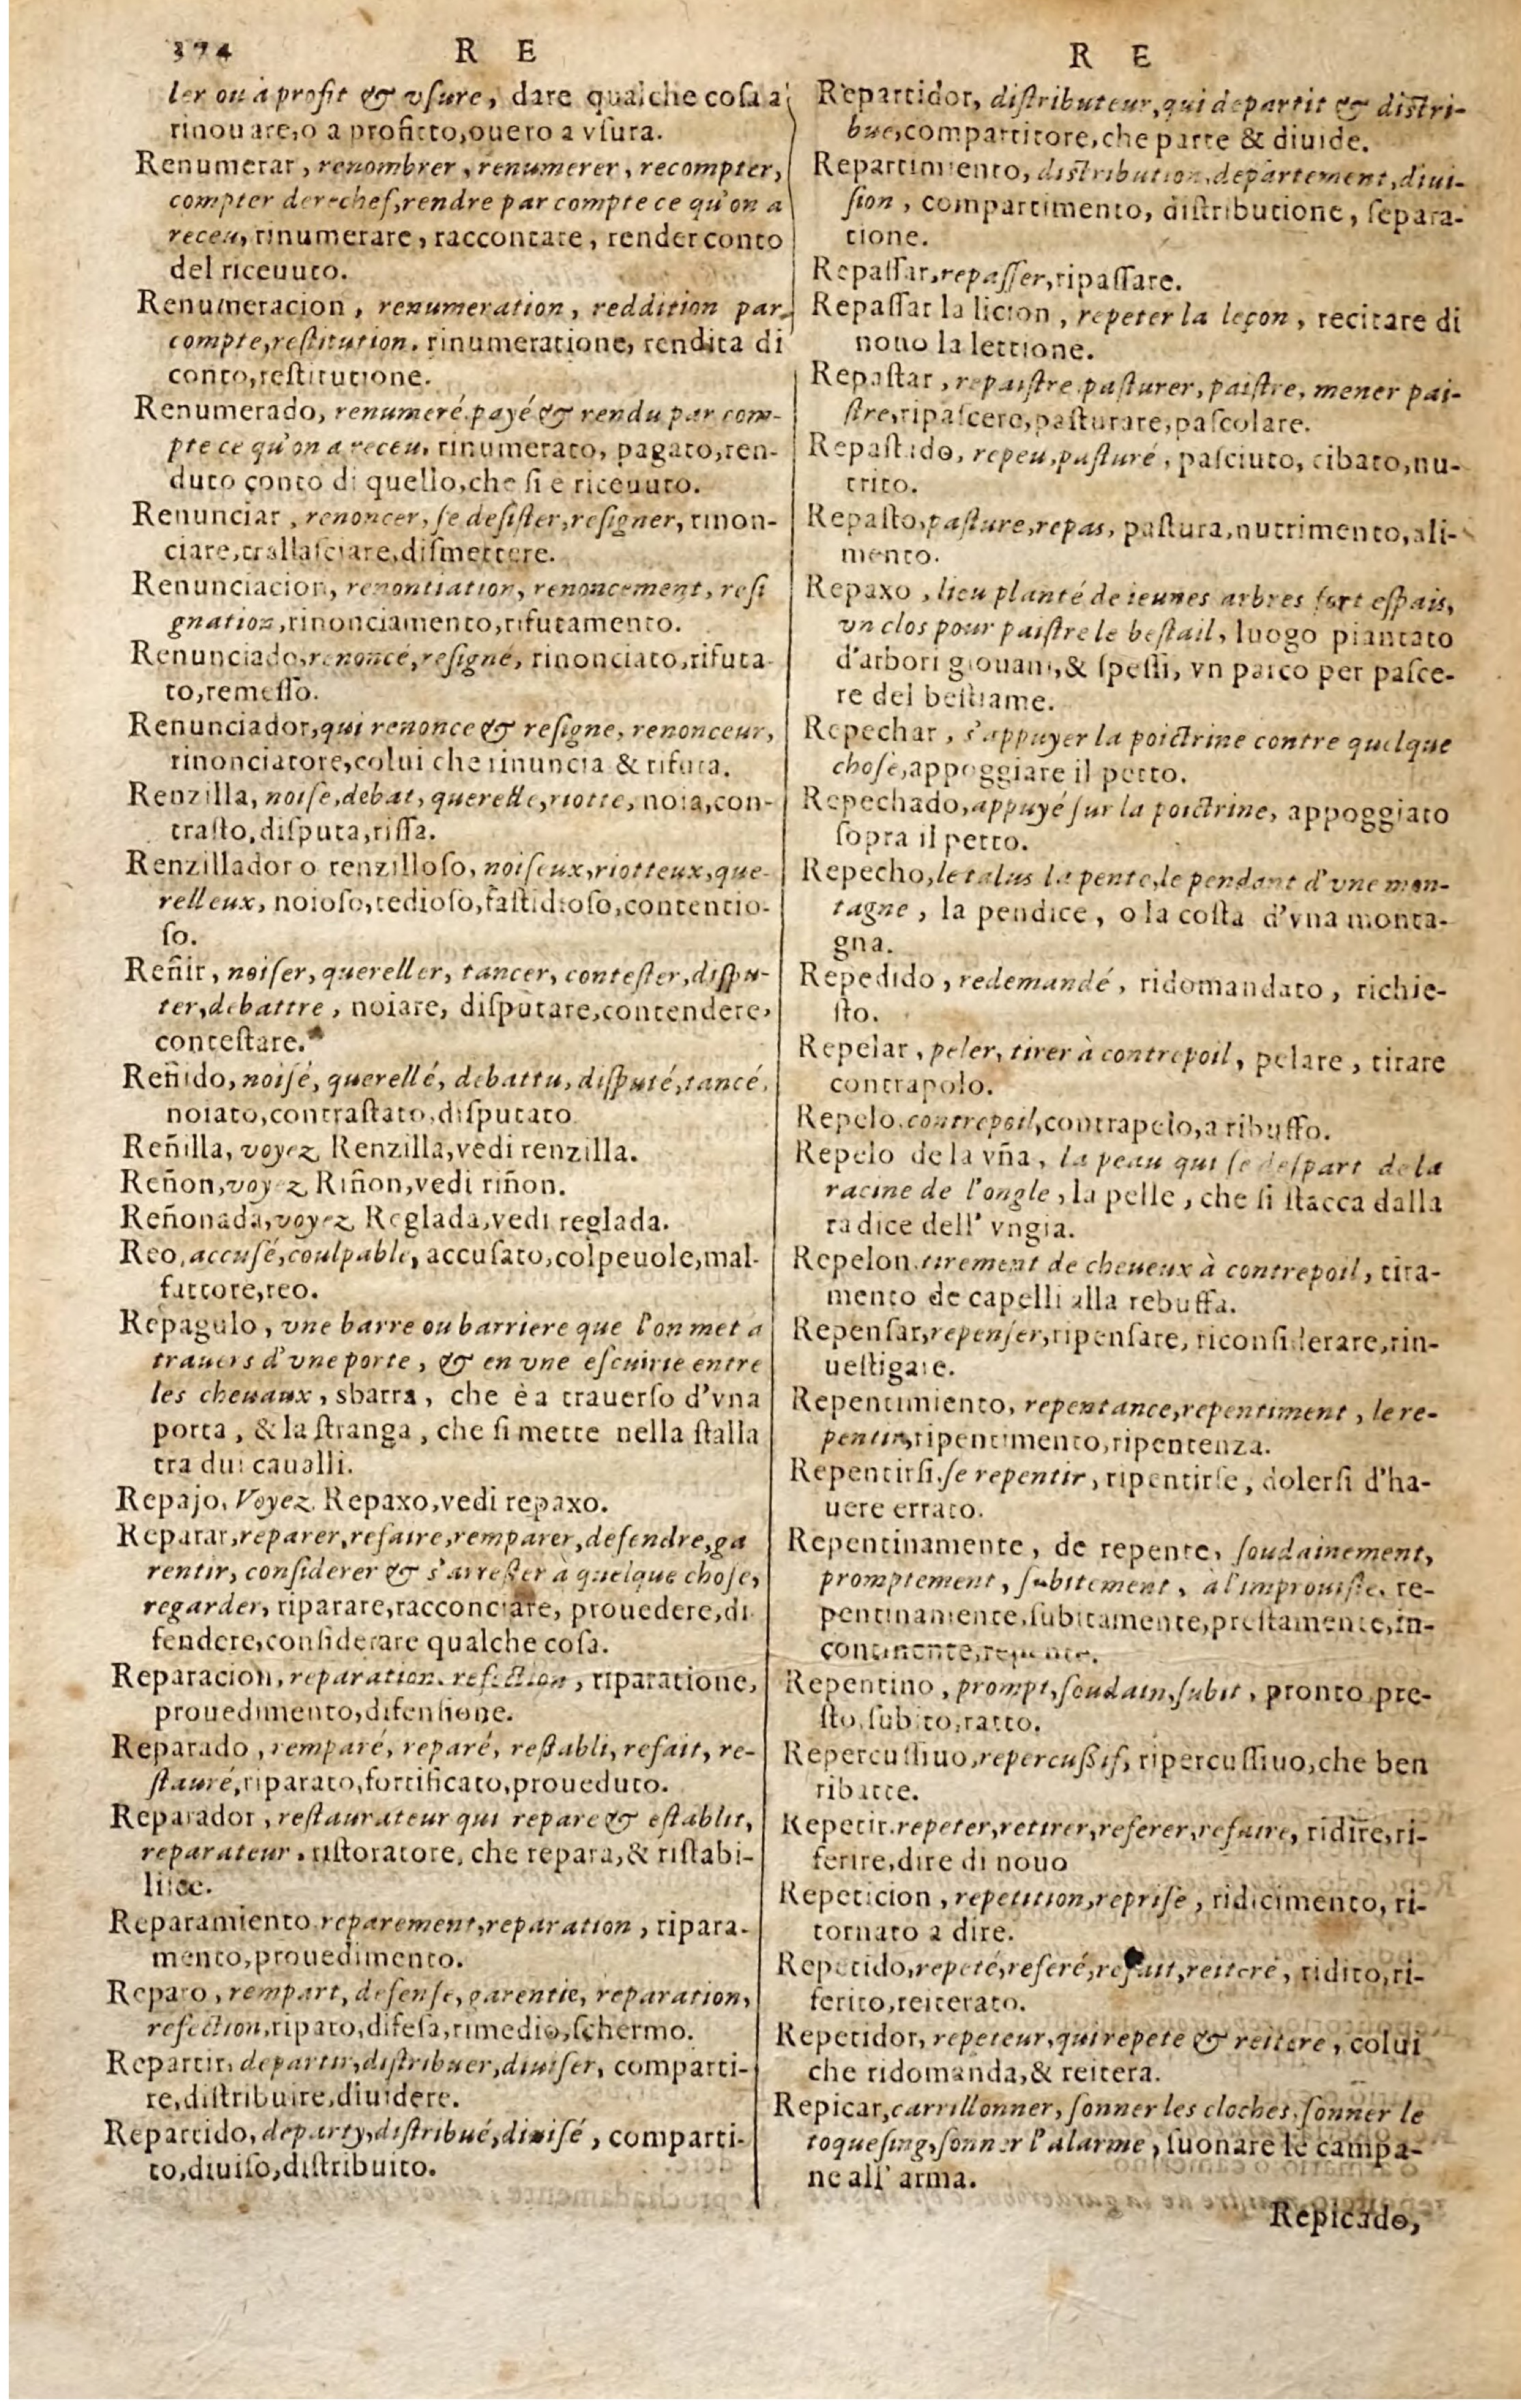 374 R E R E
ler ou à profit & vſure, dare qualche coſa a
rinouare,o a profitto,ouero a vſura.
Renumerar, renombrer, renumerer, recompter,
compter derechef,rendre par compte ce qu'on a
receu, rinumerare, raccontare, render conto
del riceuuto.
Renumeracion, renumeration, reddition par
compte,reſtitution. rinumeratione, rendita di
conto,reſtitutione.
Renumerado, renumeré.payé & rendu par com-
pte ce qu'on a receu. rinumerato, pagato,ren-
duto conto di quello,che ſi e riceuuto.
Renunciar, renoncer, ſe deſiſter,reſigner, rinon-
ciare,trallaſciare,diſmettere.
Renunciacion, renontiation, renoncement, reſi
gnation,rinonciamento,rifutamento.
Renunciado,renoncé,reſigné, rinonciato,rifuta-
to,remeſſo.
Renunciador,qui renonce & reſigne, renonceur,
rinonciatore,colui che rinuncia & rifuta.
Renzilla, noiſe,debat, querelle,riotte, noia,con-
traſto,diſputa,riſſa.
Renzillador o renzilloſo, noiſeux,riotteux,que-
relleux, noioſo,tedioſo,faſtidioſo,contentio-
ſo.
Reñir, noiſer, quereller, tancer, conteſter,diſpu-
ter,debattre, noiare, diſputare,contendere,
conteſtare.
Reñido, noiſé, querellé, debattu, diſputé,tancé,
noiato,contraſtato,diſputato
Reñilla, voyez Renzilla,vedi renzilla.
Reñon,voyez Riñon,vedi riñon.
Reñonada,voyez Reglada,vedi reglada.
Reo,accuſé,coulpable, accuſato,colpeuole,mal-
fattore,reo.
Repagulo, vne barre ou barriere que l'on met à
trauers d'vne porte, & en vne eſcuirie entre
les cheuaux, sbarra, che è a trauerſo d'vna
porta, & la ſtranga, che ſi mette nella ſtalla
tra dui caualli.
Repajo, Voyez Repaxo,vedi repaxo.
Reparar,reparer,refaire,remparer,defendre,ga
rentir, conſiderer & s'arreſter à quelque choſe,
regarder, riparare,racconciare, prouedere,di
fendere,conſiderare qualche coſa.
Reparacion, reparation.refection, riparatione,
prouedimento,difenſione.
Reparado, remparé, reparé, reſtabli, refait, re-
ſtauré,riparato,fortificato,proueduto.
Reparador, reſtaurateur qui repare & eſtablit,
reparateur, riſtoratore, che repara,& riſtabi-
liſce.
Reparamiento reparement,reparation, ripara-
mento,prouedimento.
Reparo, rempart, defenſe, garentie, reparation,
refection,riparo,difeſa,rimedio,ſchermo.
Repartir, departir,diſtribuer,diuiſer, comparti-
re,diſtribuire,diuidere.
Repartido, departy,diſtribué,diuiſé, comparti-
to,diuiſo,diſtribuito.
Repartidor, diſtributeur,qui departit & diſtri-
bue,compartitore,che parte & diuide.
Repartimiento, diſtribution,departement,diui-
ſion, compartimento, diſtributione, ſepara-
tione.
Repaſſar,repaſſer,ripaſſare.
Repaſſar la licion, repeter la leçon, recitare di
nouo la lettione.
Repaſtar, repaiſtre.paſturer, paiſtre, mener pai-
ſtre,ripaſcere,paſturare,paſcolare.
Repaſtido, repeu,paſturé, paſciuto, cibato,nu-
trito.
Repaſto,paſture,repas, paſtura,nutrimento,ali-
mento.
Repaxo, lieu planté de ieunes arbres fort eſpais,
vn clos pour paiſtre le beſtail, luogo piantato
d'arbori giouani,& ſpeſſi, vn parco per paſce-
re del beſtiame.
Repechar, s'appuyer la poictrine contre quelque
choſe,appoggiare il petto.
Repechado,appuyé ſur la poictrine, appoggiato
ſopra il petto.
Repecho,le talus la pente,le pendant d'vne mon-
tagne, la pendice, o la coſta d'vna monta-
gna.
Repedido, redemandé, ridomandato, richie-
ſto.
Repelar, peler, tirer à contrepoil, pelare, tirare
contrapolo.
Repelo.contrepoil,contrapelo,a ribuffo.
Repelo de la vña, la peau qui ſe deſpart de la
racine de l'ongle, la pelle, che ſi ſtacca dalla
radice dell' vngia.
Repelon.tirement de cheueux à contrepoil, tira-
mento de capelli alla rebuffa.
Repenſar,repenſer,ripenſare, riconſiderare,rin-
ueſtigare.
Repentimiento, repentance,repentiment, le re-
pentir,ripentimento,ripentenza.
Repentirſi.ſe repentir, ripentirſe, dolerſi d'ha-
uere errato.
Repentinamente, de repente, ſoudainement,
promptement, ſubitement, à l'improuiſte, re-
pentinamente,ſubitamente,preſtamente,in-
continente,repente.
Repentino, prompt,ſoudain,ſubit, pronto,pre-
ſto,ſubito,ratto.
Repercuſſiuo,repercuſsif, ripercuſſiuo,che ben
ribatte.
Repetir.repeter,retirer,referer,refaire, ridire,ri-
ferire,dire di nouo
Repeticion, repetition,repriſe, ridicimento, ri-
tornato a dire.
Repetido,repeté,referé,refait,reiteré, ridito,ri-
ferito,reiterato.
Repetidor, repeteur,qui repete & reitere, colui
che ridomanda,& reitera.
Repicar,carrillonner, ſonner les cloches,ſonner le
toqueſing,ſonner l'alarme, ſuonare le campa-
ne all' arma.
Repicado,